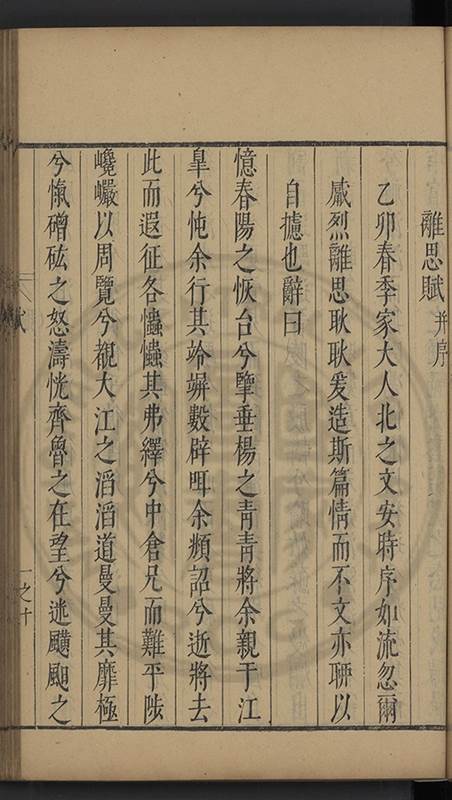 離思賦 并序
乙卯春季家大人北之文安時序如流忽爾
慼烈離思耿耿爰造斯篇情而不文亦聊以
自攄也辭曰
憶春陽之恢台兮擥垂楊之青青將余親于江
皐兮忳余行其竛竮數辟咡余頻詔兮逝將去
此而遐征各慅慅其弗繹兮中倉兄而難平陟
巉巗以周覽兮覩大江之滔滔道曼曼其靡極
兮愾磳砿之怒濤恍齊魯之在望兮迷飃颭之
賦
一之十